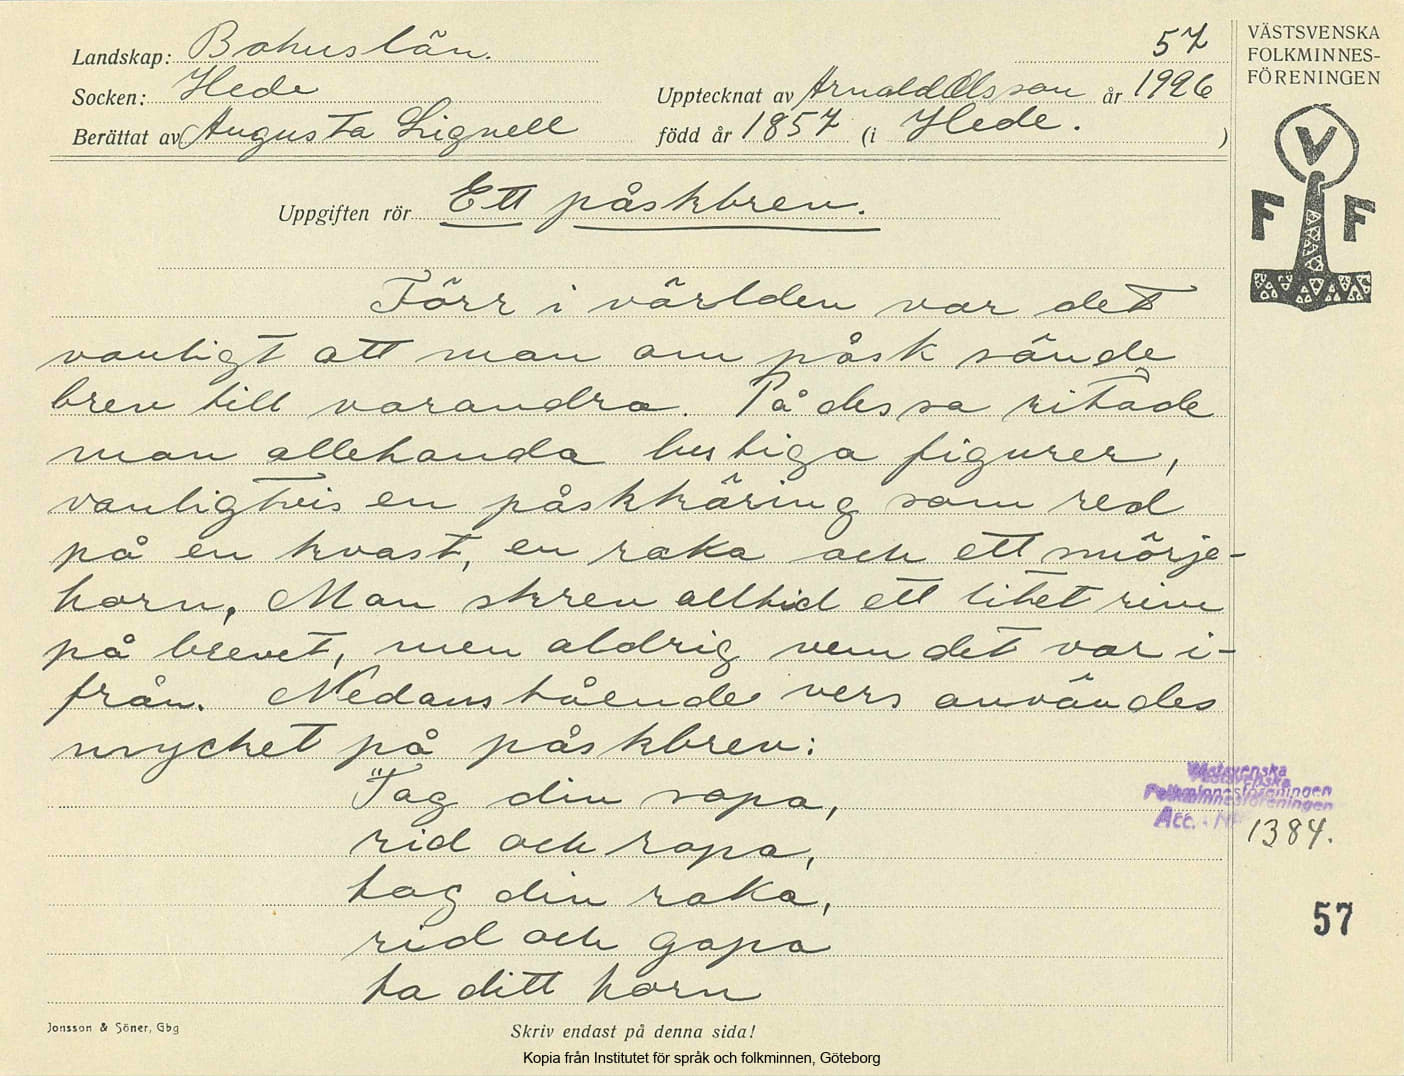 Landskap: Bohuslän. 57
Socken: Hede Upptecknat av Arnold Olsson år 1926
Berättat av Augusta Lignell född år 1857 (i Hede. )
Uppgiften rör Ett påskbrev.
VÄSTSVENSKA
FOLKMINNES-
FÖRENINGEN
V
F F
Förr i världen var det
vanligt att man om påsk sände
brev till varandra. På dessa ritade
man allehanda lustiga figurer,
vanligtvis en påskkäring som red
på en kvast, en raka och ett smörje-
horn. Man skrev alltid ett litet rim
på brevet, men aldrig vem det var i-
från. Nedanstående vers användes
mycket på påskbrev:
"Tag din sopa,
rid och ropa,
tag din raka,
rid och gapa
ta ditt horn
Västsvenska
Folkminnesföreningen
Acc. Nr 1384.
57
Jonsson & Söner, Gbg
Skriv endast på denna sida!
Kopia från Institutet för språk och folkminnen, Göteborg